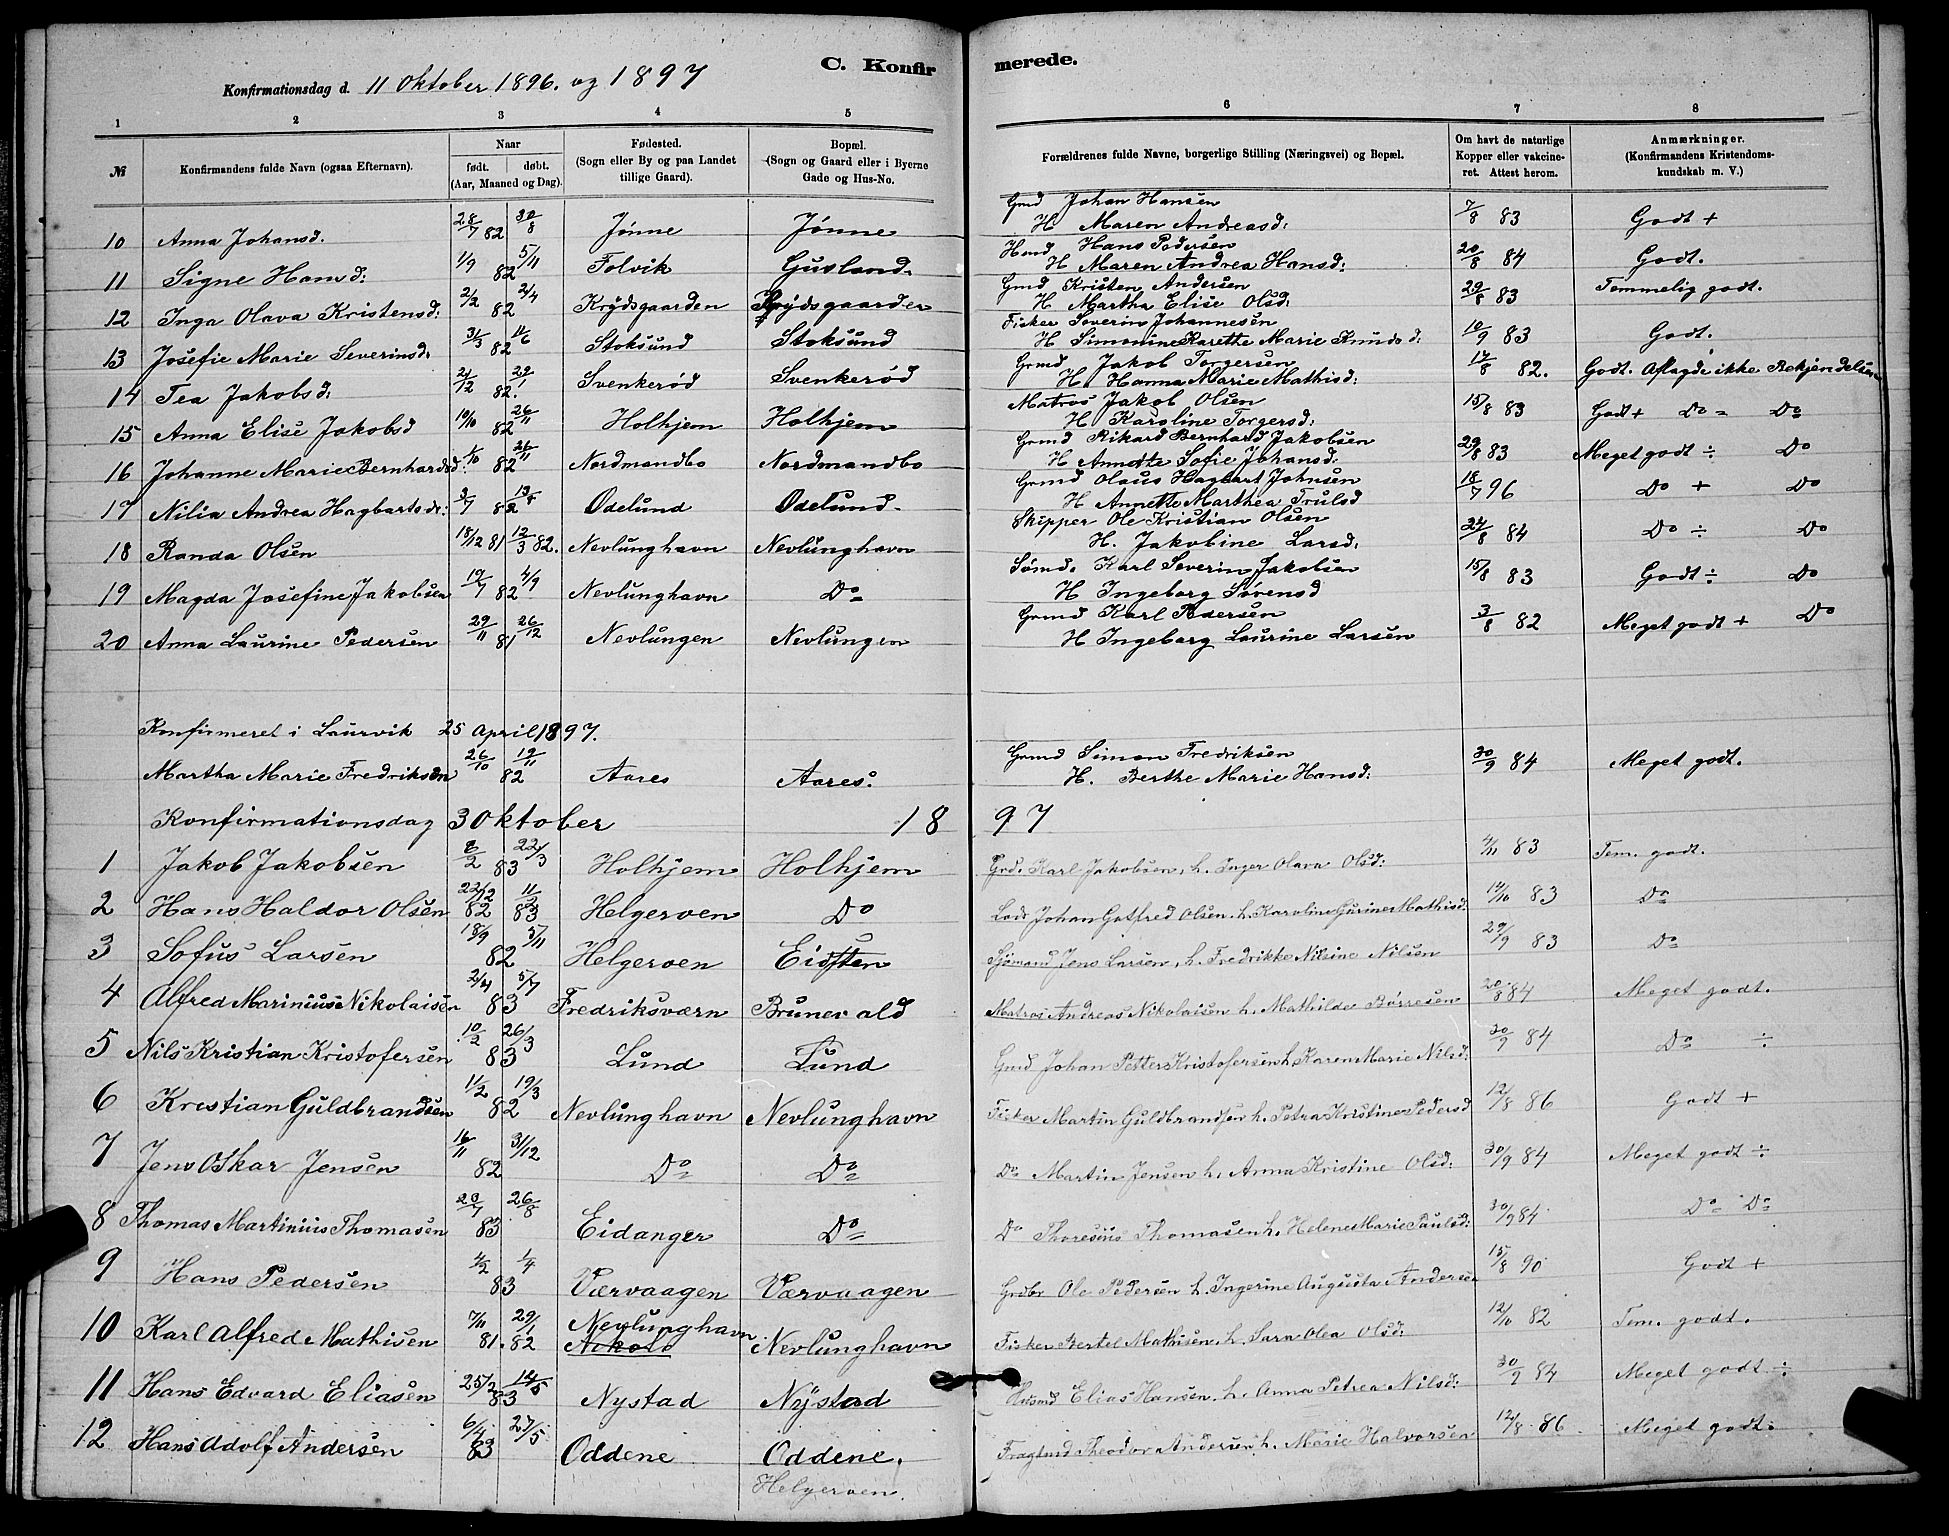 C. Konfirmerede.
Konfirmationsdag d. 11 Oktober 1896. og 1897
1 2 3 4 5 6 7 8
№ Konfirmandens fulde Navn (ogsaa Efternavn). Naar født. døbt. (Aar, Maaned og Dag). Fødested. (Sogn eller By og paa Landet tillige Gaard). Bopæl. (Sogn og Gaard eller i Byerne Gade og Hus-No. Forældrenes fulde Navne, borgerlige Stilling (Næringsvei) og Bopæl. Om havt de naturlige Kopper eller vakcineret. Attest herom. Anmærkninger. (Konfirmandens Kristendomskundskab m. V.)
10 Anna Johansd. 28/7 82 30/8 Jønne Jønne Gmd Johan Hansen H Maren Andreasd: 7/8 83 Godt +
11 Signe Hansd: 1/9 82 5/11 Tolvik Gusland Hmd Hans Pedersen H Maren Andrea Hansd: 20/8 84 Godt.
12 Inga Olava Kristensd: 2/2 82 2/4 Krydsgaarden Krydsgaarden Gmd Kristen Andersen H Martha Elise Olsd: 29/8 83 Temmelig godt.
13 Josefie Marie Severinsd: 31/3 82 11/6 Stoksund Stoksund Fisker Severin Johannesen H Simonine Karette Marie Knudsd: 10/9 83 Godt.
14 Tea Jakobsd: 21/12 82. 29/1 Svenkerød Svenkerød Grmd Jakob Torgersen H. Hanna Marie Mathisd: 17/8 82. Godt. Aflagde ikke Bekjendelsen
15 Anna Elise Jakobsd 10/10 82 26/11 Holhjem Holhjem Matros Jakob Olsen H Karoline Torgersd: 15/8 83 Godt + Do Do
16 Johanne Marie Bernhardsd: 1/10 82 26/11 Nordmandbo Nordmandbo Grmd Rikard Bernhard Jakobsen H Annette Sofie Johansd: 29/8 83 Meget godt ÷ Do
17 Nilia Andrea Hagbartsd: 3/7 82 13/8 Odelund Odelund Grmd Olaus Hagbart Johnsen H Annette Marthea Trulsd 18/7 96 Do + Do
18 Randa Olsen 18/12 81 12/3 82. Nevlunghavn Nevlunghavn Skipper Ole Kristian Olsen H. Jakobine Larsd: 24/8 84 Do ÷ Do
19 Magda Josefine Jakobsen 19/7 82 4/9 Nevlunghavn Do Sømd. Karl Severin Jakobsen H Ingeborg Sørensd 15/8 83 Godt ÷ Do
20 Anna Laurine Pedersen 29/11 81 26/12 Nevlungen Nevlungen Grmd Karl Pedersen H Ingeborg Laurine Larsen 3/8 82 Meget godt + Do
Konfirmeret i Laurvik 25 April 1897.
Martha Marie Fredriksen 26/10 82 19/11 Aares Aares. Grmd Simon Fredriksen H. Berthe Marie Hansd: 30/9 84 Meget godt.
Konfirmationsdag 3 Oktober 1897
1 Jakob Jakobsen 8/2 83 22/3 Holhjem Holhjem Grd. Karl Jakobsen, h. Inger Olava Olsd: 4/11 83 Tem. godt.
2 Hans Haldor Olsen 22/12 82 11/3 83 Helgeroen Do Lods Johan Gotfred Olsen. h. Karoline Gurine Mathisd. 14/10 83 Do
3 Sofus Larsen 18/9 82 5/11 Helgeroen Eidsten Sjømand Jens Larsen, h. Fredrikke Nilsine Nilsen 29/9 83 Do
4 Alfred Marinius Nikolaisen 2/4 83 5/7 Fredriksværn Brunevald Matros Andreas Nikolaisen h. Mathilde Børresen 20/8 84 Meget godt.
5 Nils Kristian Kristofersen 10/2 83 26/3 Lund Lund Gmd Johan Petter Kristofersen h. Karen Marie Nilsd: 30/9 84 Do ÷
6 Kristian Guldbrandsen 11/2 82 19/3 Nevlunghavn Nevlunghavn Fisker Martin Guldbrandsen h. Petra Kristine Pedersd 12/8 86 Godt +
7 Jens Oskar Jensen 16/11 82 31/12 Do Do Do Martin Jensen h. Anna Kristine Olsd: 30/9 84 Meget godt ÷
8 Thomas Martinius Thomasen 23/7 83 26/8 Eidanger Do Do Thoresius Thomasen h. Helene Marie Paulsd: 30/9 84 Do Do
9 Hans Pedersen 4/2 83 1/4 Værvaagen Værvaagen Grdbr Ole Pedersen h. Ingerine Augusta Andersen 15/8 90 Godt +
10 Karl Alfred Mathisen 7/11 81. 29/1 82 Nevlunghavn Nevlunghavn Fisker Bertel Mathisen. h. Sara Olea Olsd: 12/10 82 Tem. godt.
11 Hans Edvard Eliasen 25/2 83 14/5 Nystad Nystad Husmd Elias Hansen. h. Anna Petrea Nilsd: 30/9 84 Meget godt ÷
12 Hans Adolf Andersen 6/4 83 27/5 Oddene Oddene. Fragtmd Theodor Andersen h. Marie Halvorsen 12/8 86 Meget godt:
Helgeroen.